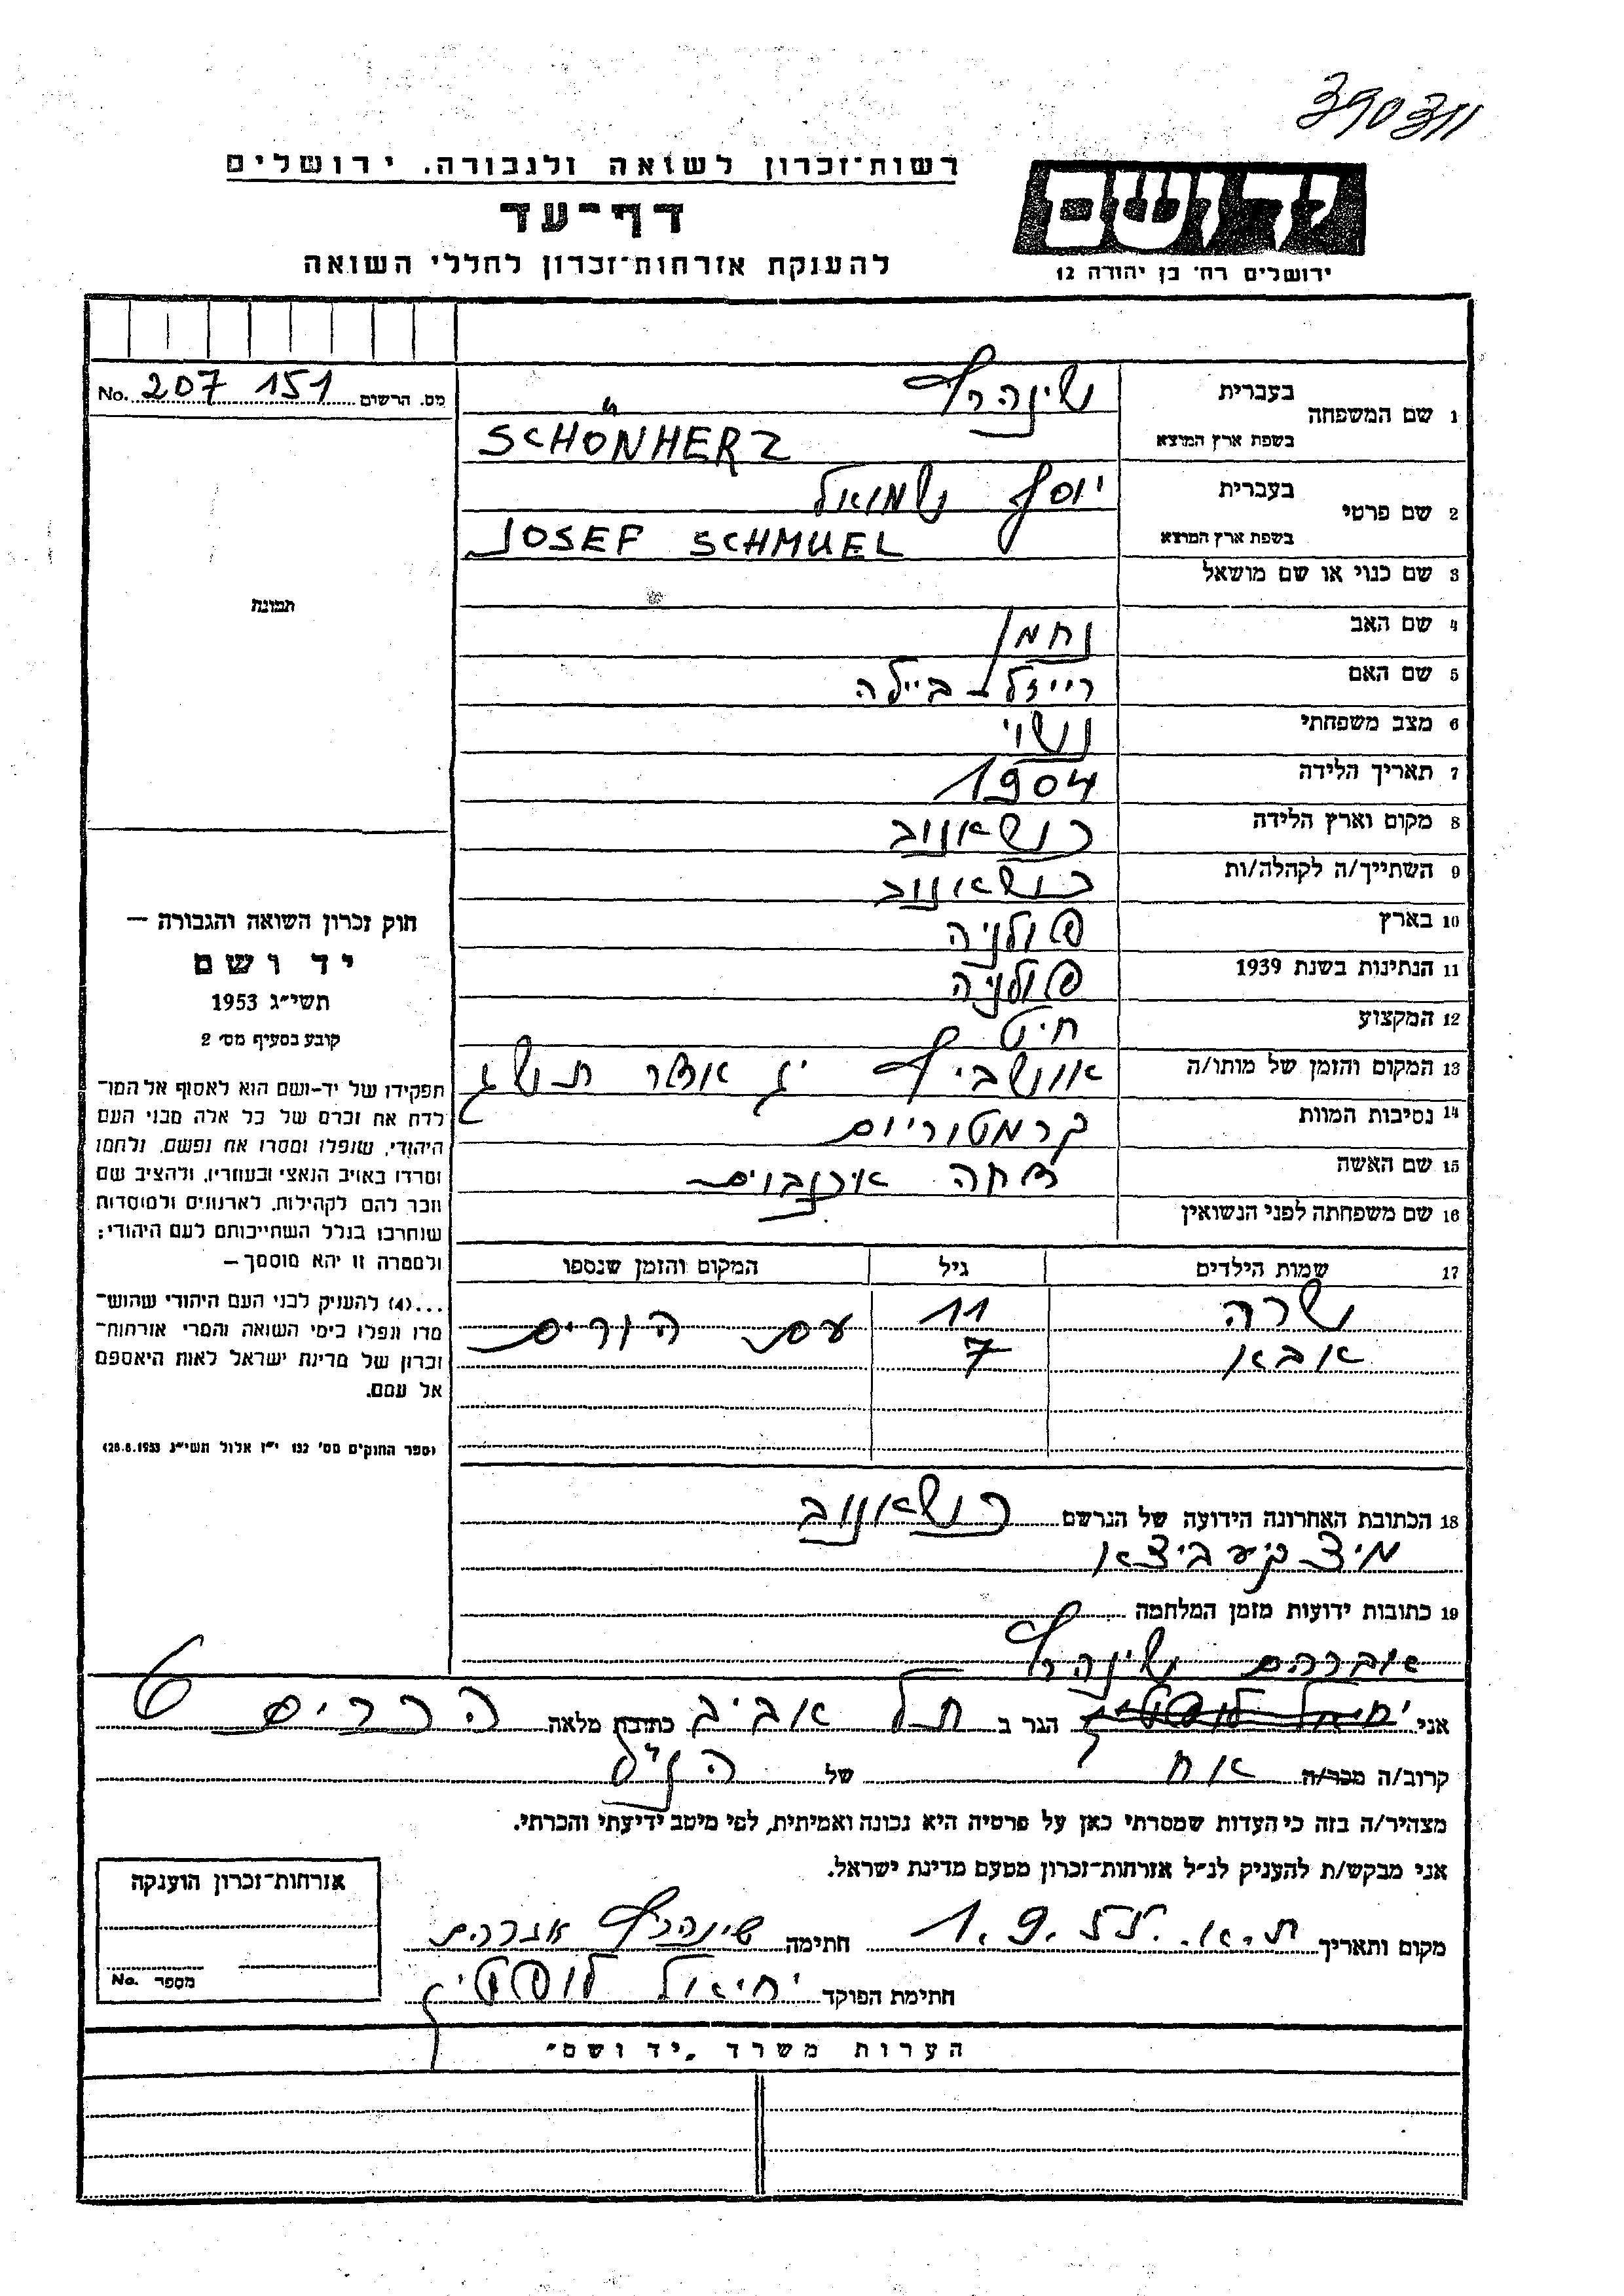 390311
רשות־זכרון לשואה ולגבורה. ירושלים
דף־עד
להענקת אזרחות־זכרון לחללי השואה
יד ושם
ירושלים רח׳ בן יהודה 12
מס. הרשום 207 151 No.
1 שם המשפחה
בעברית שינהרץ
בשפת ארץ המוצא SCHÖNHERZ
2 שם פרטי
בעברית יוסף שמואל
בשפת ארץ המוצא JOSEF SCHMUEL
3 שם כנוי או שם מושאל
4 שם האב נחמן
5 שם האם רייזל־ביילה
6 מצב משפחתי נשוי
7 תאריך הלידה 1904
8 מקום וארץ הלידה כשאנוב
9 השתייך/ה לקהלה/ות כשאנוב
10 בארץ פולניה
11 הנתינות בשנת 1939 פולניה
12 המקצוע חיט
13 המקום והזמן של מותו/ה אושביץ יג אדר תשג
14 נסיבות המוות קרמטוריום
15 שם האשה
16 שם משפחתה לפני הנשואין
17 שמות הילדים גיל המקום והזמן שנספו
שרה 11 עם הורים
אבא 7
18 הכתובת האחרונה הידועה של הנרשם כשאנוב
מיצקיעביצא
19 כתובות ידועות מזמן המלחמה
אברהם שינהרץ
אני יחיאל לופטין הגר ב תל אביב כתובת מלאה הכרים 6
קרוב/ה מכר/ה אח של הנ״ל
מצהיר/ה בזה כי העדות שמסרתי כאן על פרטיה היא נכונה ואמיתית, לפי מיטב ידיעתי והכרתי.
אני מבקש/ת להעניק לנ״ל אזרחות־זכרון מטעם מדינת ישראל.
מקום ותאריך ת.א. 1.9.55 חתימה שינהרץ אברהם
חתימת הפוקד יחיאל לופטין
תמונה
חוק זכרון השואה והגבורה —
יד ושם
תשי״ג 1953
קובע בסעיף מס׳ 2
תפקידו של יד-ושם הוא לאסוף אל המו־
לדת את זכרם של כל אלה מבני העם
היהודי, שנפלו ומסרו את נפשם, נלחמו
ומרדו באויב הנאצי ובעוזריו, ולהציב שם
וזכר להם לקהילות, לארגונים ולמוסדות
שנחרבו בגלל השתייכותם לעם היהודי;
ולמטרה זו יהא מוסמך —
...(4) להעניק לבני העם היהודי שהוש־
מדו ונפלו בימי השואה והמרי אזרחות־
זכרון של מדינת ישראל לאות היאספם
אל עמם.
(ספר החוקים מס׳ 132 י״ז אלול תשי״ג 28.8.1953)
אזרחות־זכרון הוענקה
מספר No.
הערות משרד „יד ושם״